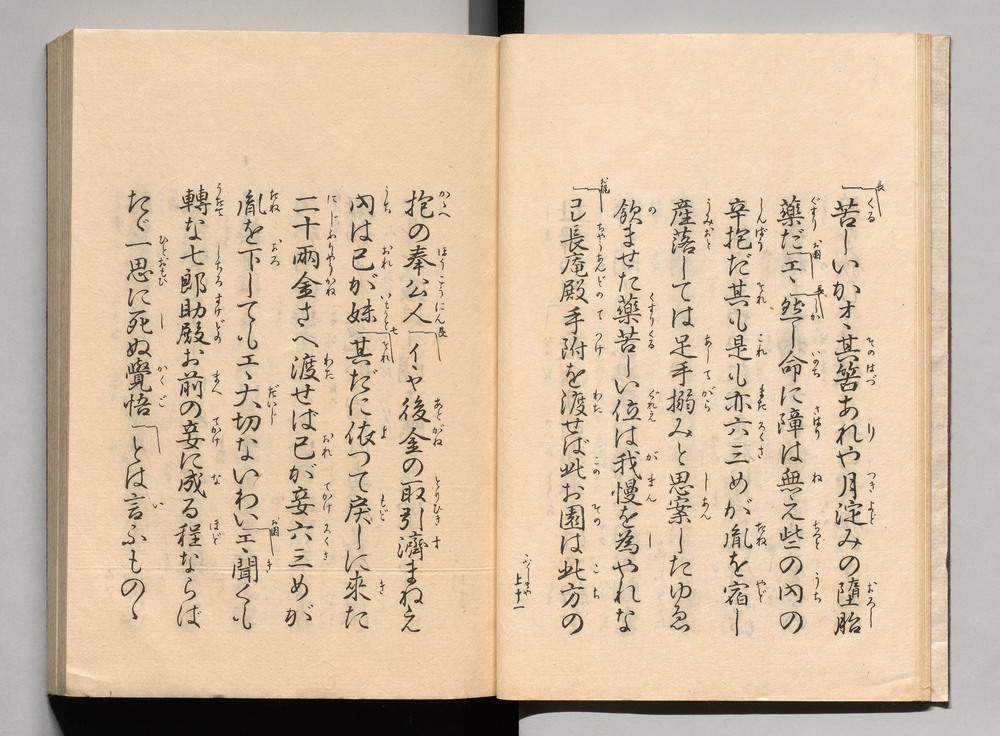 長「苦しいかオヽ其筈ありや月淀みの墮胎
藥だ お園「エヽ 長「然し命に障は無え些の內の
辛抱だ其も是も亦六三めが胤を宿し
産落しては足手搦みと思案したゆゑ
飲ませた藥苦しい位は我慢を為やれな
「コレ長庵殿手附を渡せば此お園は此方の
上十一
抱の奉公人 長「イヤ後金の取引濟まねえ
內は己が妹 七「其だに依つて戾しに來た
二十兩金さへ渡せば己が妾六三めが
胤を下しても エヽ大切ないわい お園「エヽ聞くも
轉な七郎助殿お前の妾に成る程ならば
たゞ一思に死ぬ覺悟「とは言ふものゝ